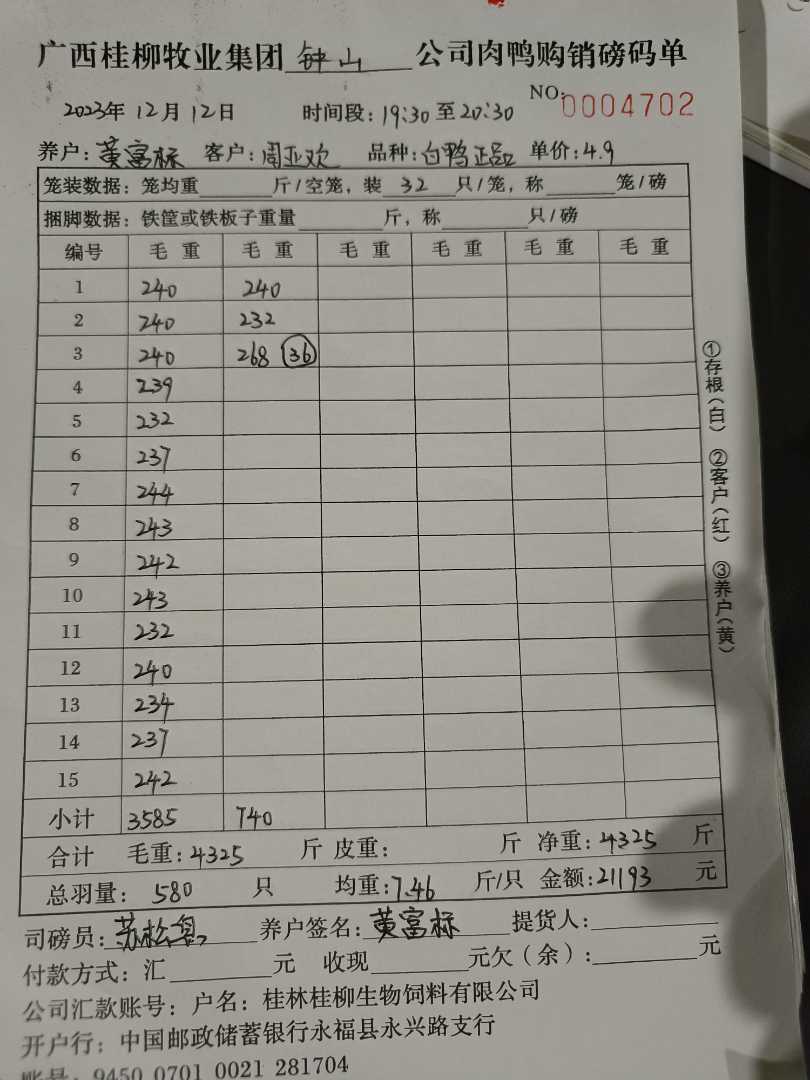 广西桂柳牧业集团 钟山 公司肉鸭购销磅码单
2023年12月12日 时间段:19:30至20:30 NO:0004702
养户:黄富标 客户:周亚欢 品种:白鸭正品 单价:4.9
笼装数据:笼均重 斤/空笼,装 32 只/笼,称 笼/磅
捆脚数据:铁筐或铁板子重量 斤,称 只/磅
编号 毛重 毛重 毛重 毛重 毛重 毛重
1 240 240
2 240 232
3 240 268 36
4 239
5 232
6 237
7 244
8 243
9 242
10 243
11 232
12 240
13 234
14 237
15 242
小计 3585 740
合计 毛重:4325 斤 皮重: 斤 净重:4325 斤
总羽量:580 只 均重:7.46 斤/只 金额:21193 元
司磅员:苏松 养户签名:黄富标 提货人:
付款方式:汇 元 收现 元欠(余): 元
公司汇款账号:户名:桂林桂柳生物饲料有限公司
开户行:中国邮政储蓄银行永福县永兴路支行
账号:9450 0701 0021 281704
①存根(白) ②客户(红) ③养户(黄)